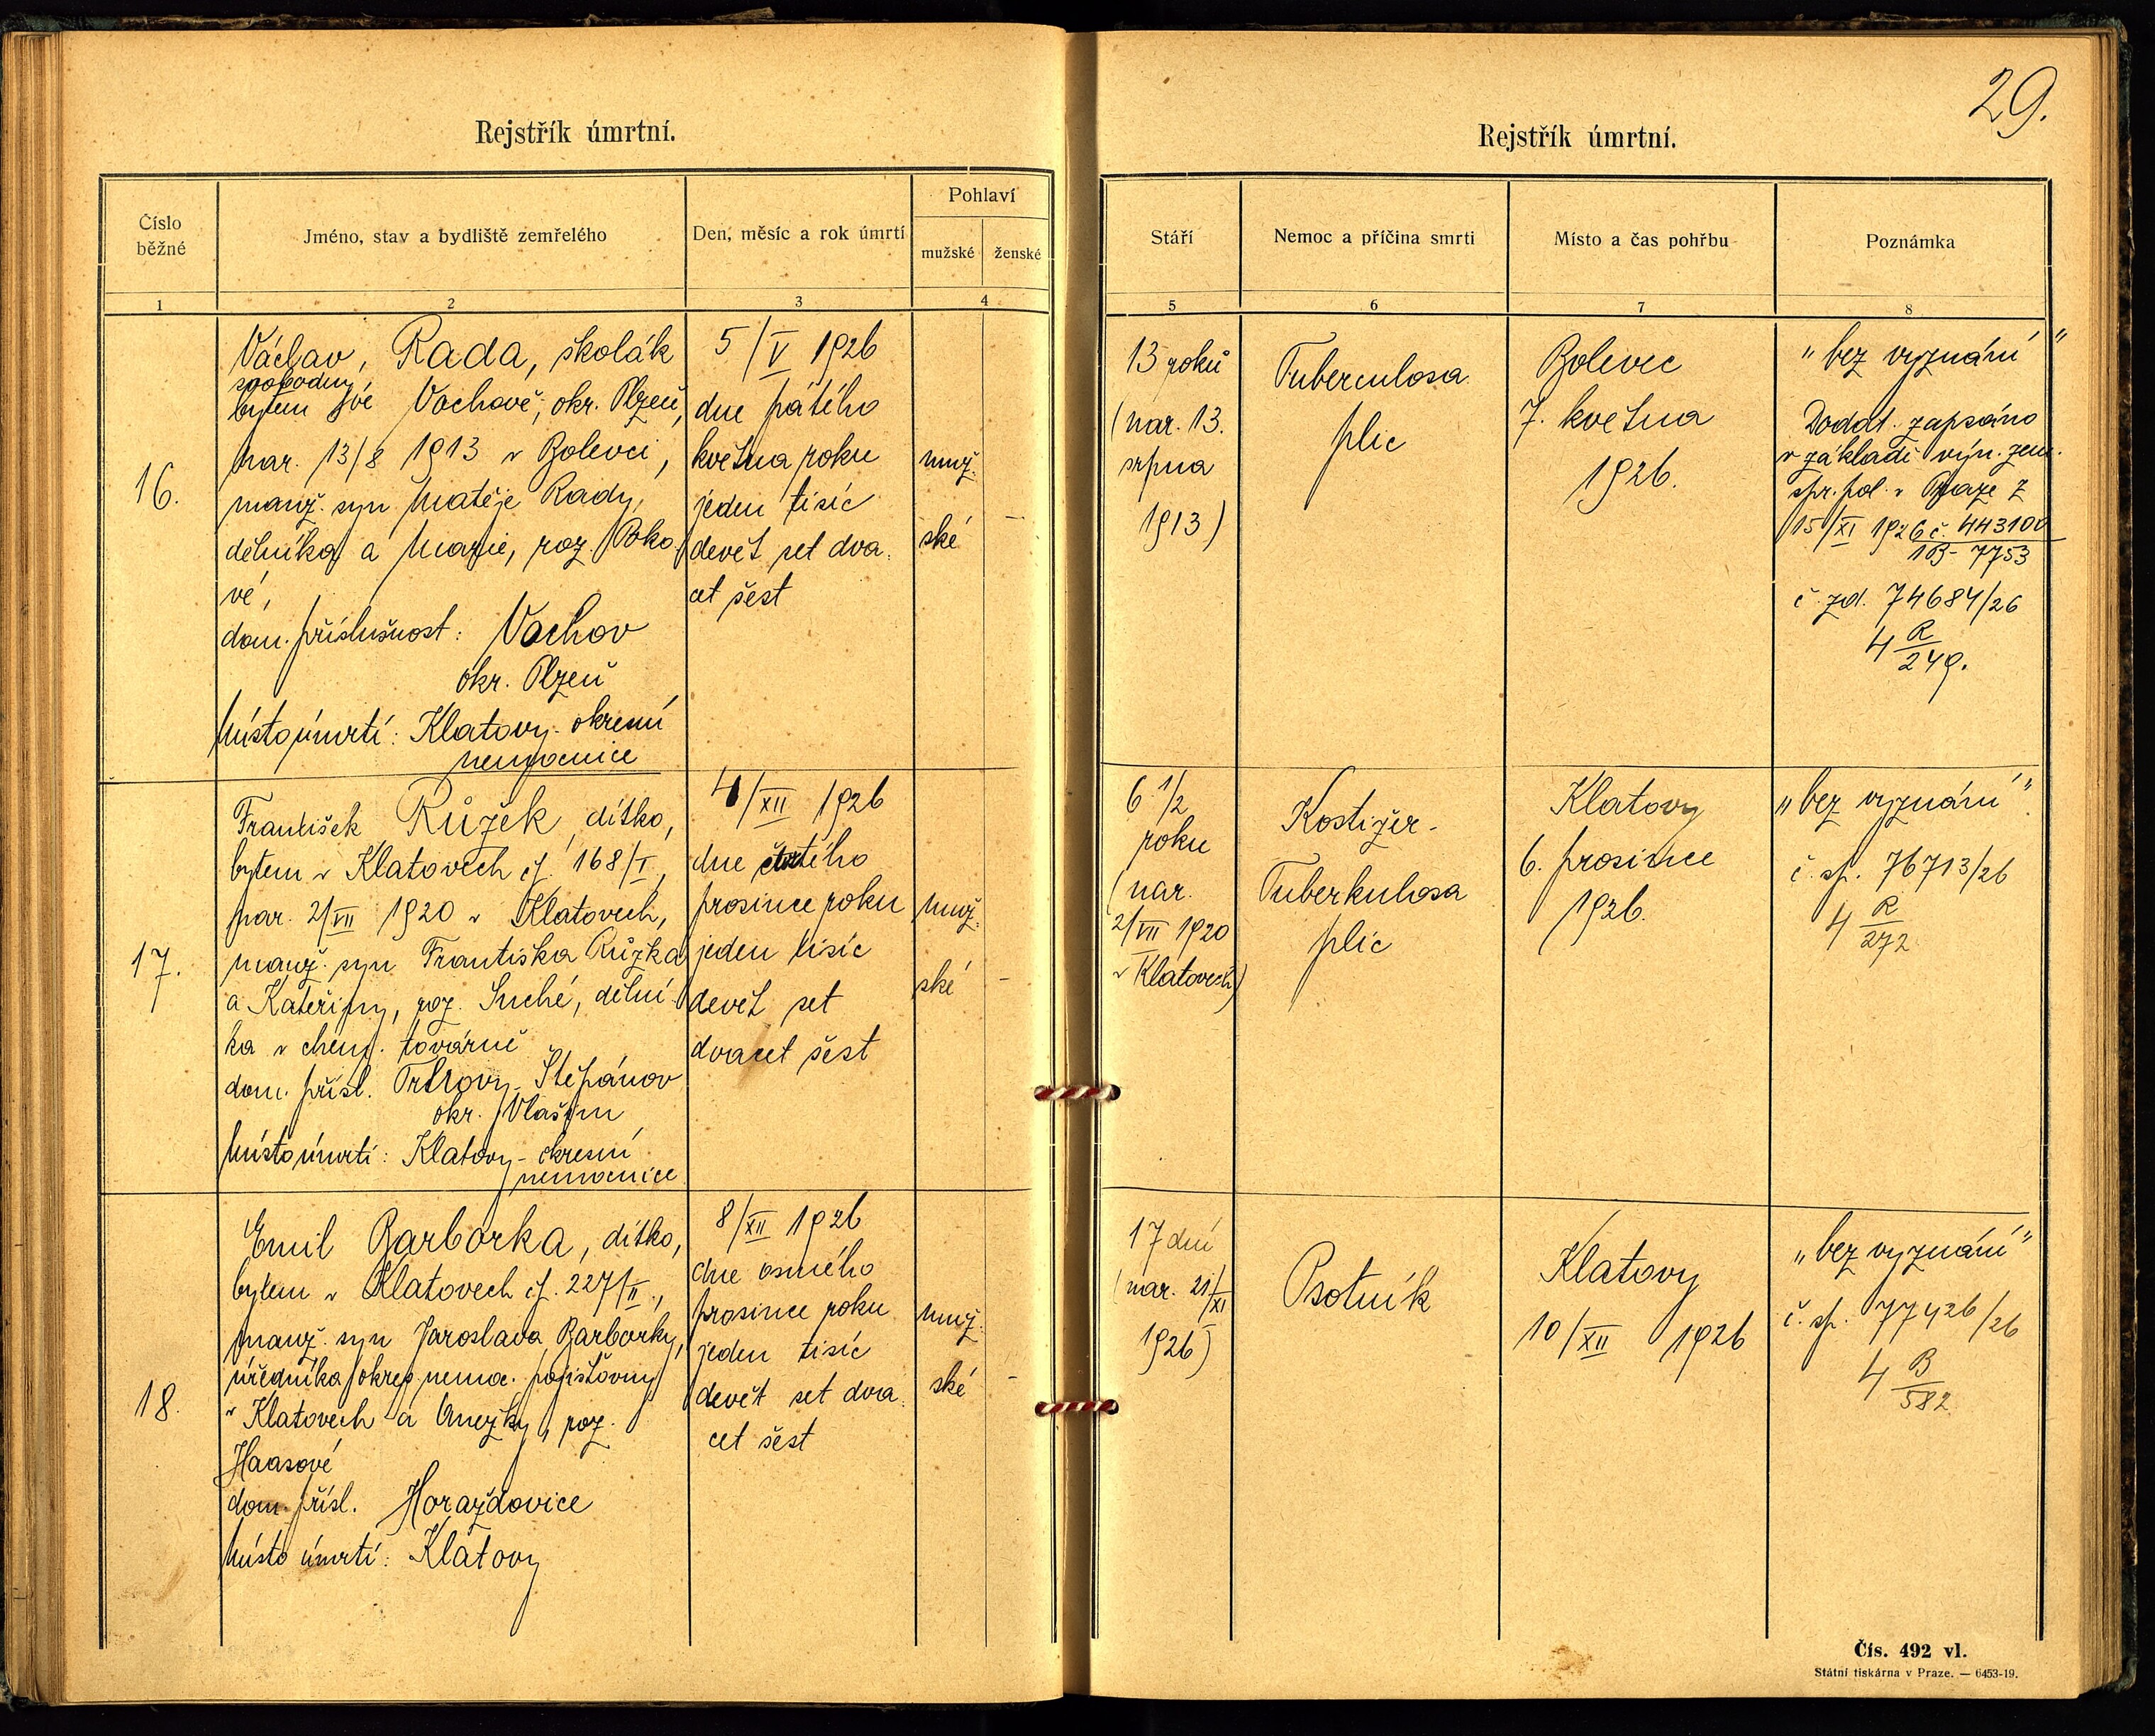 29.
Rejstřík úmrtní.
Číslo běžné
Jméno, stav a bydliště zemřelého
Den, měsíc a rok úmrtí
Pohlaví
mužské
ženské
1
2
3
4
Václav, Rada, školák
svobodný
bytem ve Vochově, okr. Plzeň,
nar. 13/8 1913 v Bolevci,
manž. syn Matěje Rady,
dělníka a Marie, roz. Boko-
vé,
dom. příslušnost: Vochov
okr. Plzeň
Místo úmrtí: Klatovy - okresní
nemocnice
16.
5/V 1926
dne pátého
května roku
jeden tisíc
devět set dva-
cet šest
muž-
ské
-
František Růžek, dítko,
bytem v Klatovech čp. 168/I,
nar. 2/VII 1920 v Klatovech,
manž. syn Františka Růžka
a Kateřiny, roz. Suché, dělní-
ka v chem. továrně
dom. přísl. Trhový Štěpánov
okr. Vlašim
Místo úmrtí: Klatovy - okresní
nemocnice
17.
4/XII 1926
dne čtvrtého
prosince roku
jeden tisíc
devět set
dvacet šest
muž-
ské
-
Emil Barborka, dítko,
bytem v Klatovech čp. 227/II.,
manž. syn Jaroslava Barborky,
úředníka okres. nemoc. pojišťovny
v Klatovech a Anežky, roz.
Haasové
dom. přísl. Horažďovice
Místo úmrtí: Klatovy
18.
8/XII 1926
dne osmého
prosince roku
jeden tisíc
devět set dva-
cet šest
muž-
ské
-
Rejstřík úmrtní.
Stáří
Nemoc a příčina smrti
Místo a čas pohřbu
Poznámka
5
6
7
8
13 roků
(nar. 13.
srpna
1913)
Tuberculosa
plic
Bolevec
7. května
1926.
"bez vyznání"
Dodat. zapsáno
v základě výn. zem.
spr. pol. v Praze z
15/XI 1926 č. 443100
1B - 7753
č. zd. 74684/26
4 R/249.
6 1/2
roku
(nar.
2/VII 1920
v Klatovech)
Kostižer -
Tuberkulosa
plic
Klatovy
6. prosince
1926.
"bez vyznání".
č. sp. 76713/26
4 R/272
17 dní
(nar. 21/XI
1926)
Psotník
Klatovy
10/XII 1926
"bez vyznání"
č. sp. 77426/26
4 B/582
Čís. 492 vl.
Státní tiskárna v Praze. — 6453-19.